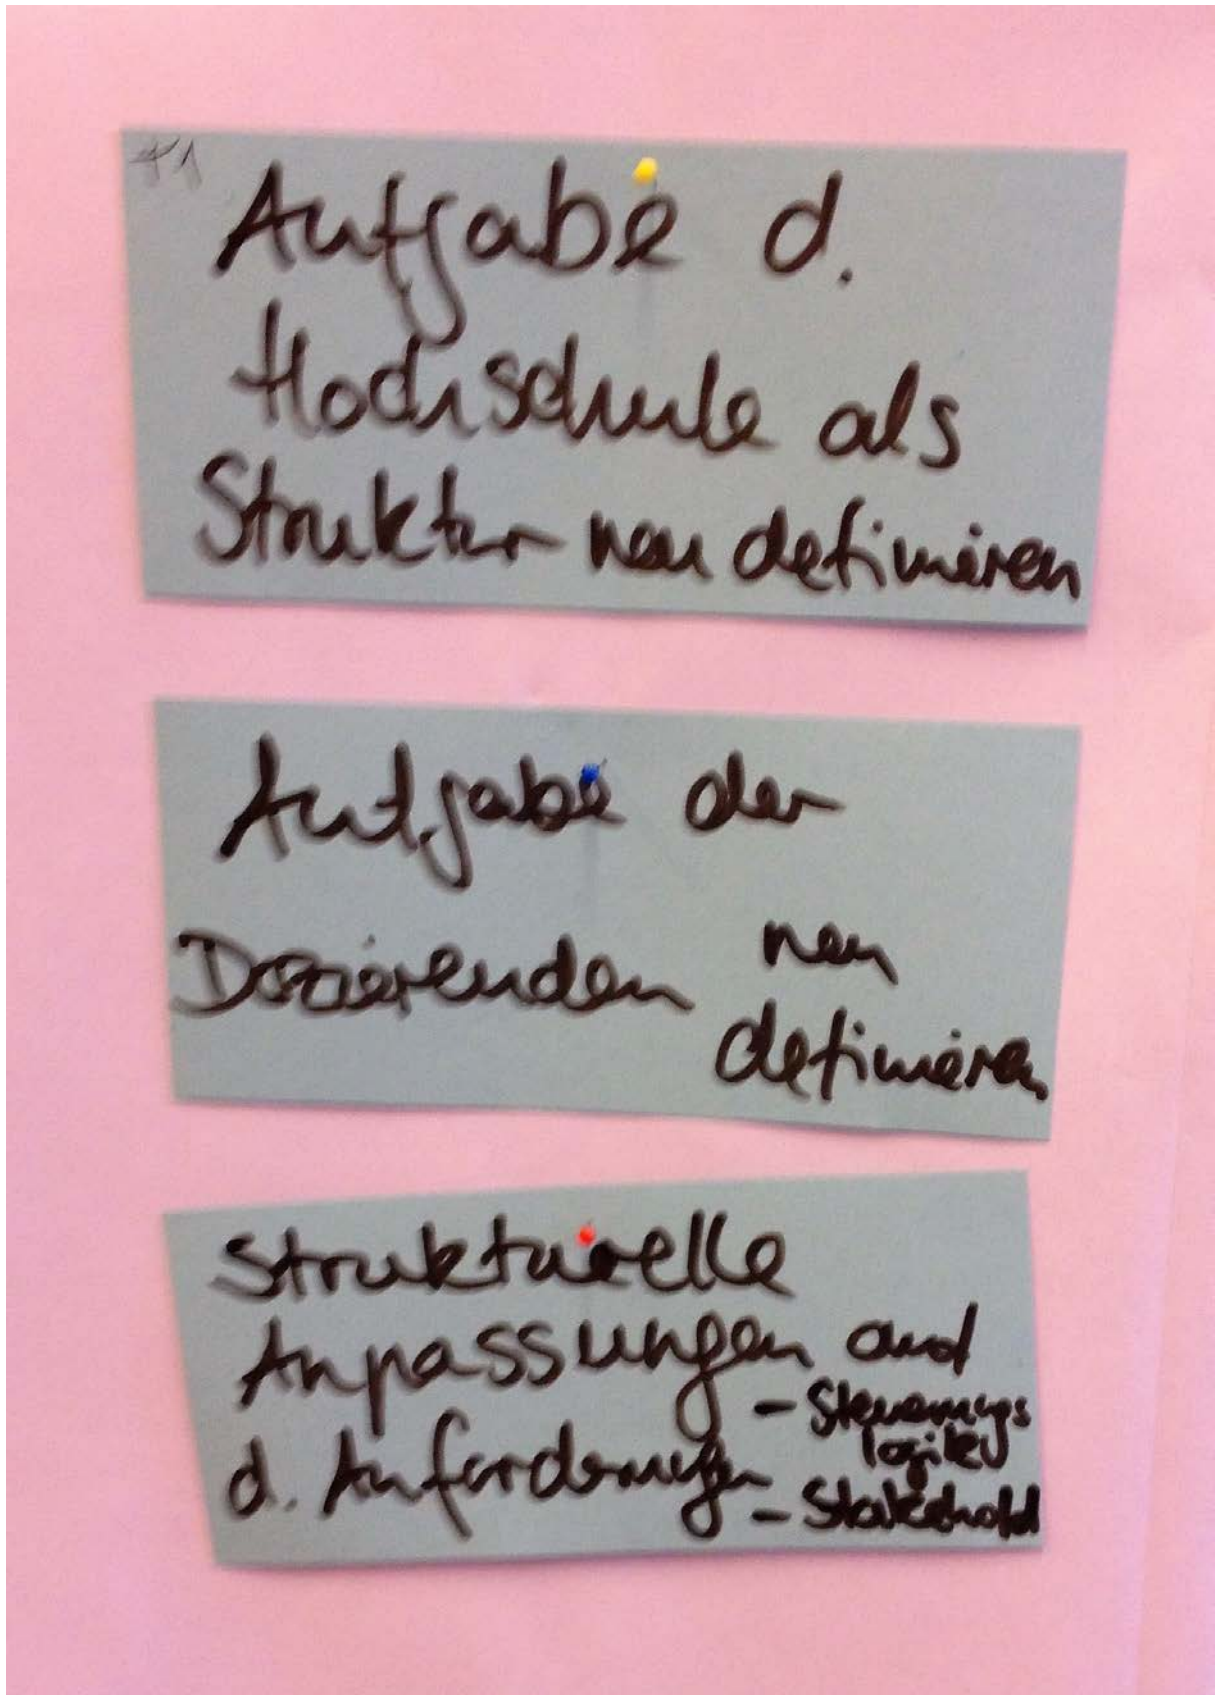 Aufgabe d.
Hochschule als
Struktur neu definieren
Aufgabe der
Dozierenden neu
definieren
Strukturelle
Anpassungen
d. Anforderungen
- Steuerungs
logiken
- Stakehold